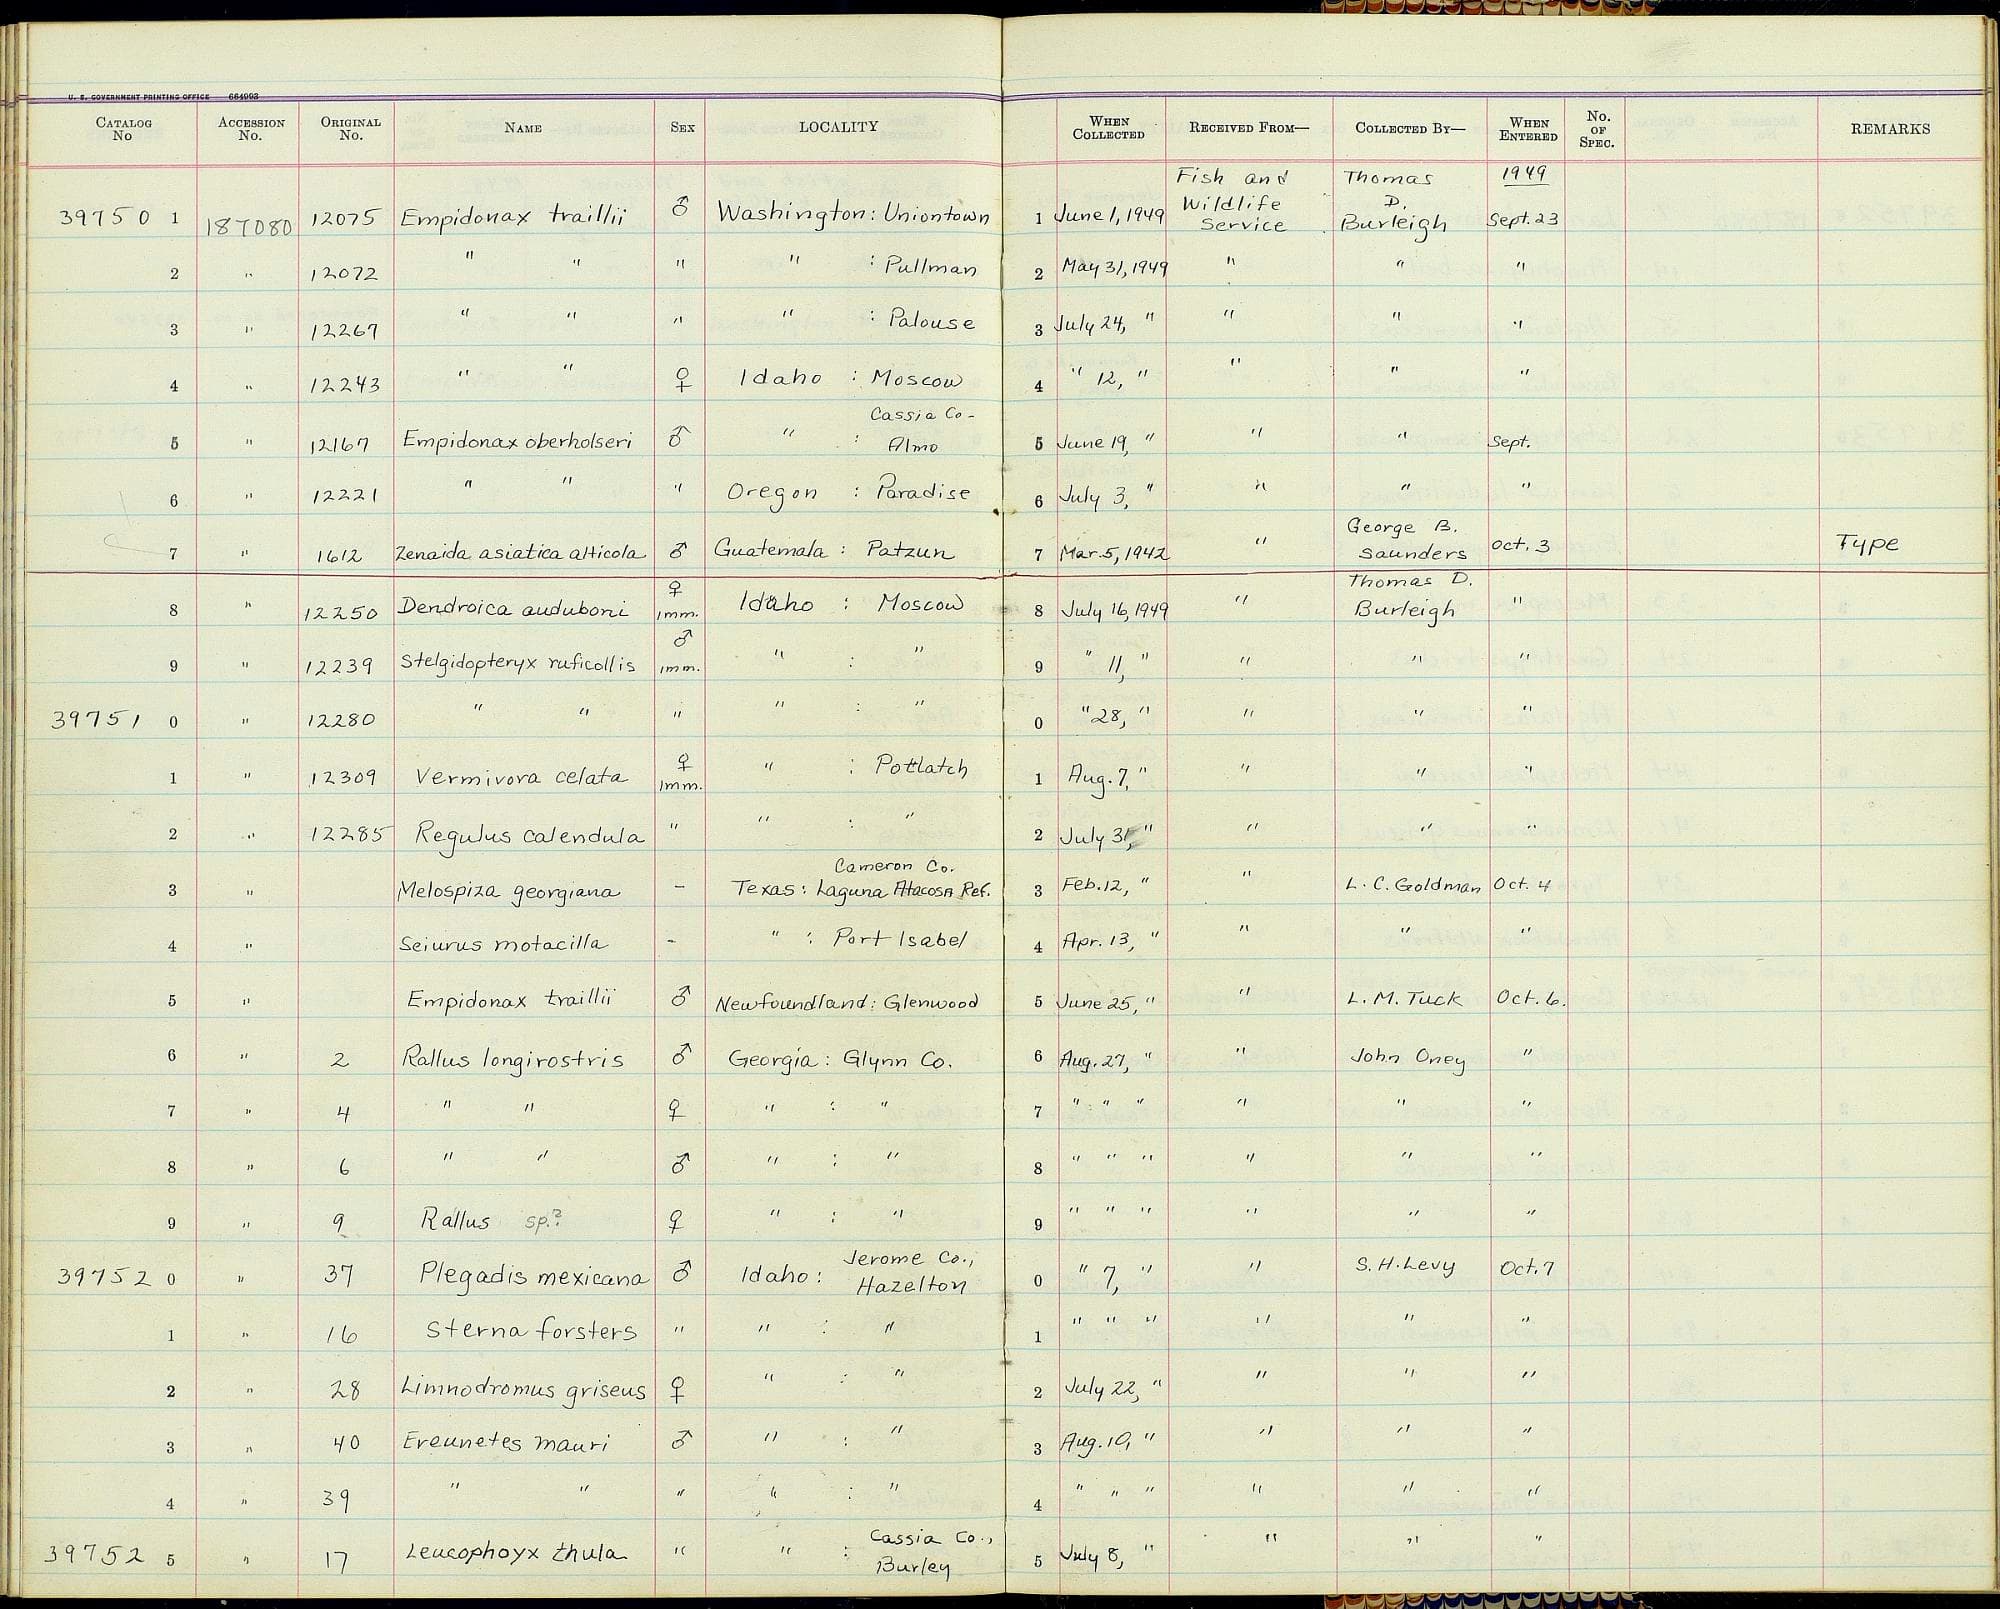 U. S. GOVERNMENT PRINTING OFFICE 664093
CATALOG No ACCESSION No. ORIGINAL No. NAME SEX LOCALITY WHEN COLLECTED RECEIVED FROM— COLLECTED BY— WHEN ENTERED No. OF SPEC. REMARKS
39750 1 187080 12075 Empidonax traillii ♂ Washington: Uniontown 1 June 1, 1949 Fish and Wildlife Service Thomas D. Burleigh 1949 Sept. 23
2 " 12072 " " " " : Pullman 2 May 31, 1949 " " "
3 " 12267 " " " " : Palouse 3 July 24, " " " "
4 " 12243 " " ♀ Idaho : Moscow 4 " 12, " " " "
5 " 12167 Empidonax oberholseri ♂ " : Cassia Co- Almo 5 June 19, " " " Sept.
6 " 12221 " " " Oregon : Paradise 6 July 3, " " " "
7 " 1612 Zenaida asiatica alticola ♂ Guatemala : Patzun 7 Mar. 5, 1942 " George B. Saunders Oct. 3 Type
8 " 12250 Dendroica auduboni ♀ imm. Idaho : Moscow 8 July 16, 1949 " Thomas D. Burleigh "
9 " 12239 Stelgidopteryx ruficollis ♂ imm. " : " 9 " 11, " " " "
39751 0 " 12280 " " " " : " 0 " 28, " " " "
1 " 12309 Vermivora celata ♀ imm. " : Potlatch 1 Aug. 7, " " " "
2 " 12285 Regulus calendula " " : " 2 July 31, " " " "
3 " Melospiza georgiana - Texas: Cameron Co. Laguna Atacosa Ref. 3 Feb. 12, " " L. C. Goldman Oct. 4
4 " Seiurus motacilla - " : Port Isabel 4 Apr. 13, " " " "
5 " Empidonax traillii ♂ Newfoundland: Glenwood 5 June 25, " " L. M. Tuck Oct. 6.
6 " 2 Rallus longirostris ♂ Georgia: Glynn Co. 6 Aug. 27, " " John Oney "
7 " 4 " " ♀ " : " 7 " " " " " "
8 " 6 " " ♂ " : " 8 " " " " " "
9 " 9 Rallus sp.? ♀ " : " 9 " " " " " "
39752 0 " 37 Plegadis mexicana ♂ Idaho: Jerome Co., Hazelton 0 " 7, " " S. H. Levy Oct. 7
1 " 16 Sterna forsters " " : " 1 " " " " " "
2 " 28 Limnodromus griseus ♀ " : " 2 July 22, " " " "
3 " 40 Ereunetes mauri ♂ " : " 3 Aug. 10, " " " "
4 " 39 " " " " : " 4 " " " " " "
39752 5 " 17 Leucophoyx thula " " : Cassia Co., Burley 5 July 8, " " " "